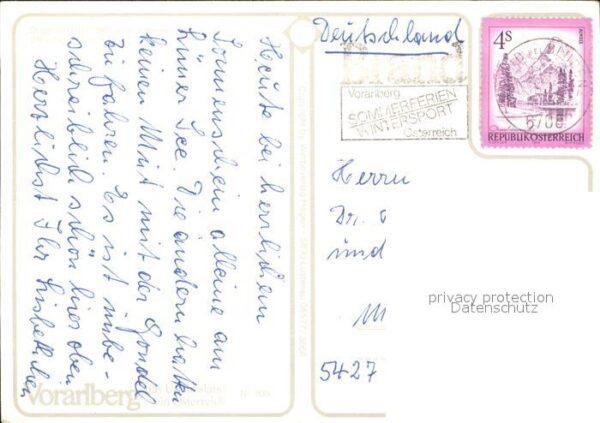 Heute bei herrlichem
Sonnenschein alleine am
Lüner See. Die andern hatten
keinen Mut mit der Gondel
zu fahren. Es ist unbe-
schreiblich schön hier oben
Herzlichst Ihr
Vorarlberg
Österreich
Deutschland
Brand
Vorarlberg
SOMMERFERIEN
WINTERSPORT
Österreich
4S
REPUBLIK ÖSTERREICH
6708
Herrn
Dr.
und
M
5427
privacy protection
Datenschutz